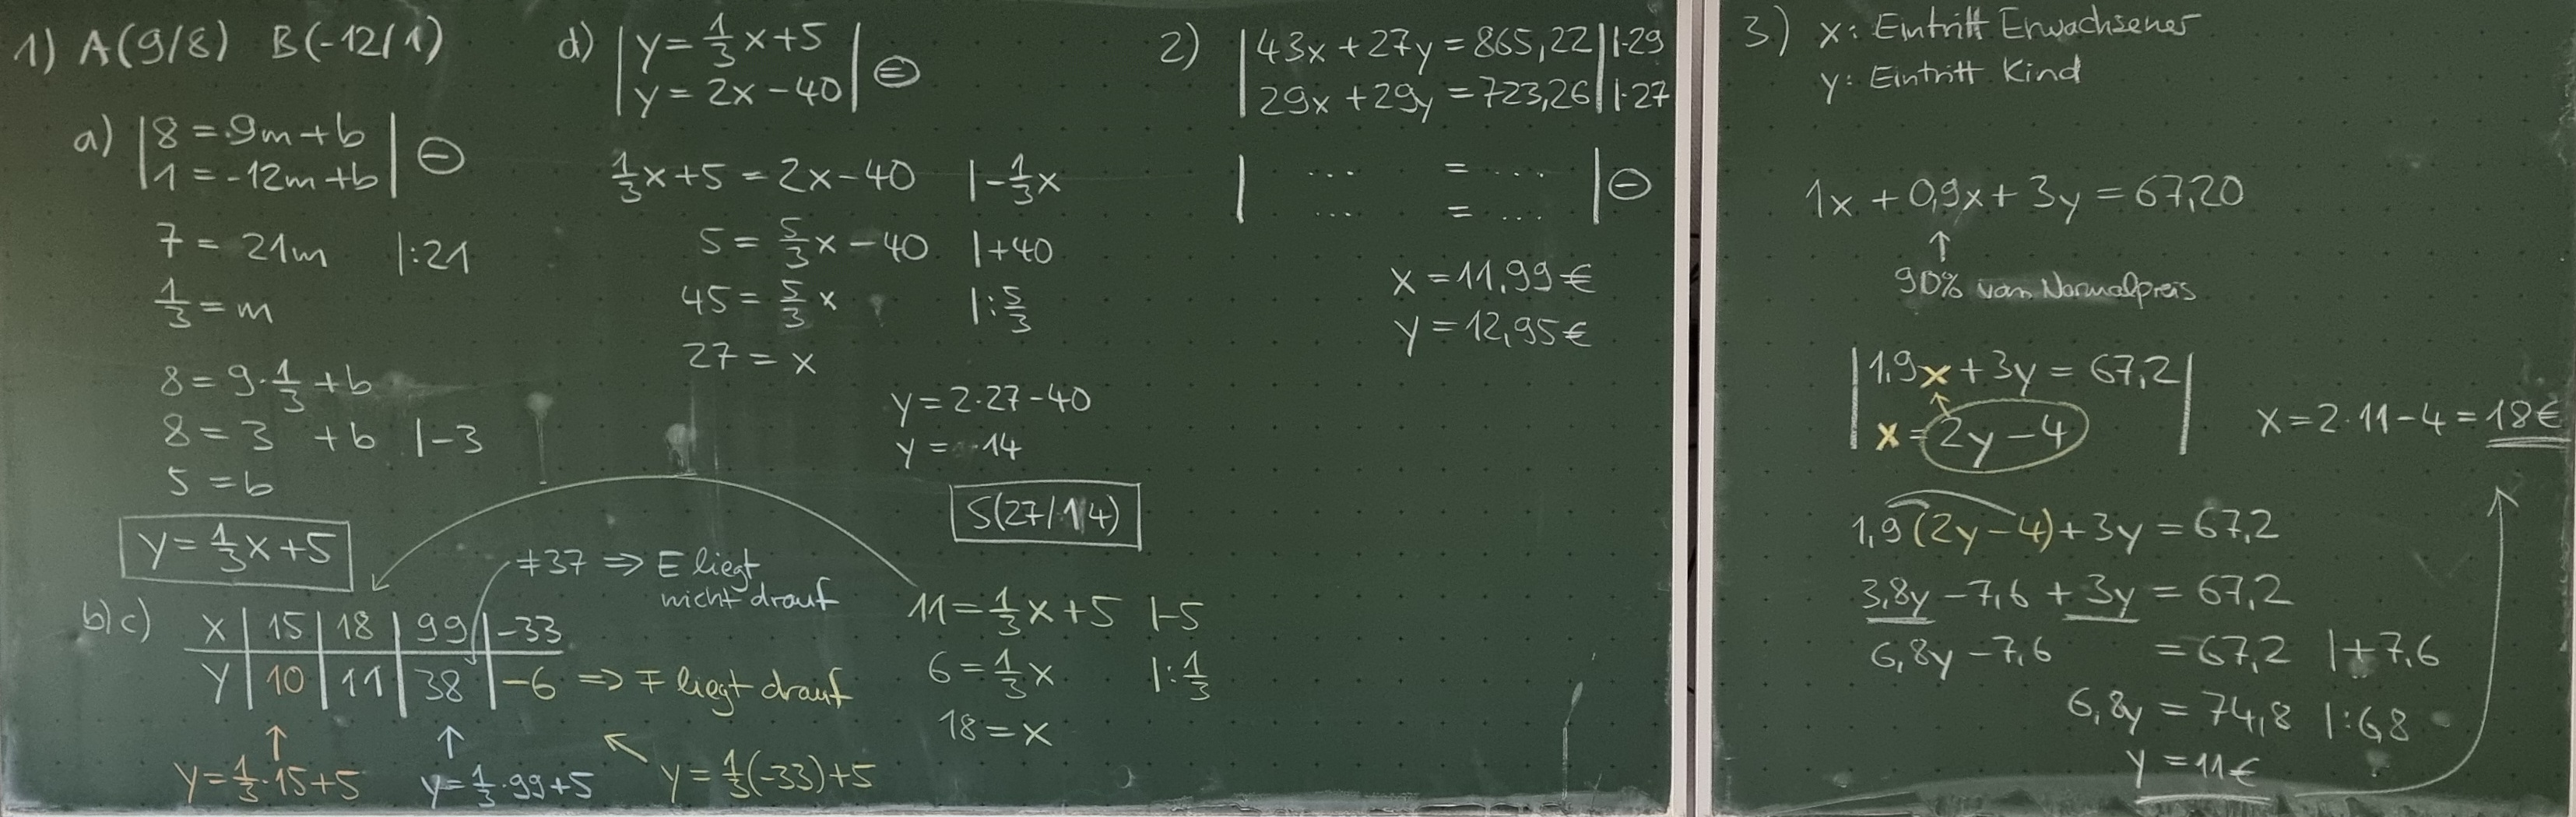 1) A(9/8) B(-12/1)
a) |8 = 9m+b|
|1 = -12m+b| ⊖
7 = 21m |:21
1/3 = m
8 = 9·1/3 + b
8 = 3 + b |-3
5 = b
y = 1/3x+5
b)c)
x | 15 | 18 | 99 | -33
y | 10 | 11 | 38 | -6 => F liegt drauf
≠37 => E liegt
nicht drauf
y = 1/3·15+5
y = 1/3·99+5
y = 1/3(-33)+5
d) |y = 1/3x+5|
|y = 2x-40| ⊖
1/3x+5 = 2x-40 |-1/3x
5 = 5/3x-40 |+40
45 = 5/3x |:5/3
27 = x
y = 2·27-40
y = 14
S(27/14)
11 = 1/3x+5 |-5
6 = 1/3x |:1/3
18 = x
2) |43x+27y = 865,22| |·29
|29x+29y = 723,26| |·27
| ... = ... |
| ... = ... | ⊖
x = 11,99€
y = 12,95€
3) x: Eintritt Erwachsener
y: Eintritt Kind
1x + 0,9x + 3y = 67,20
↑
90% vom Normalpreis
|1,9x + 3y = 67,2|
|x = 2y-4|
x = 2·11-4 = 18€
1,9(2y-4)+3y = 67,2
3,8y-7,6+3y = 67,2
6,8y-7,6 = 67,2 |+7,6
6,8y = 74,8 |:6,8
y = 11€